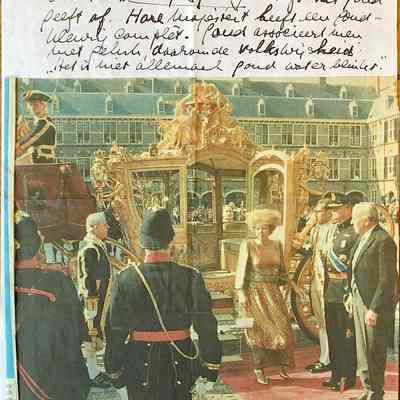 goud
geeft af. Hare Majesteit heeft een goud-
kleurig complet. Goud associeert men
met geluk, daarom de volkswijsheid
„Het is niet allemaal goud wat er blinkt".